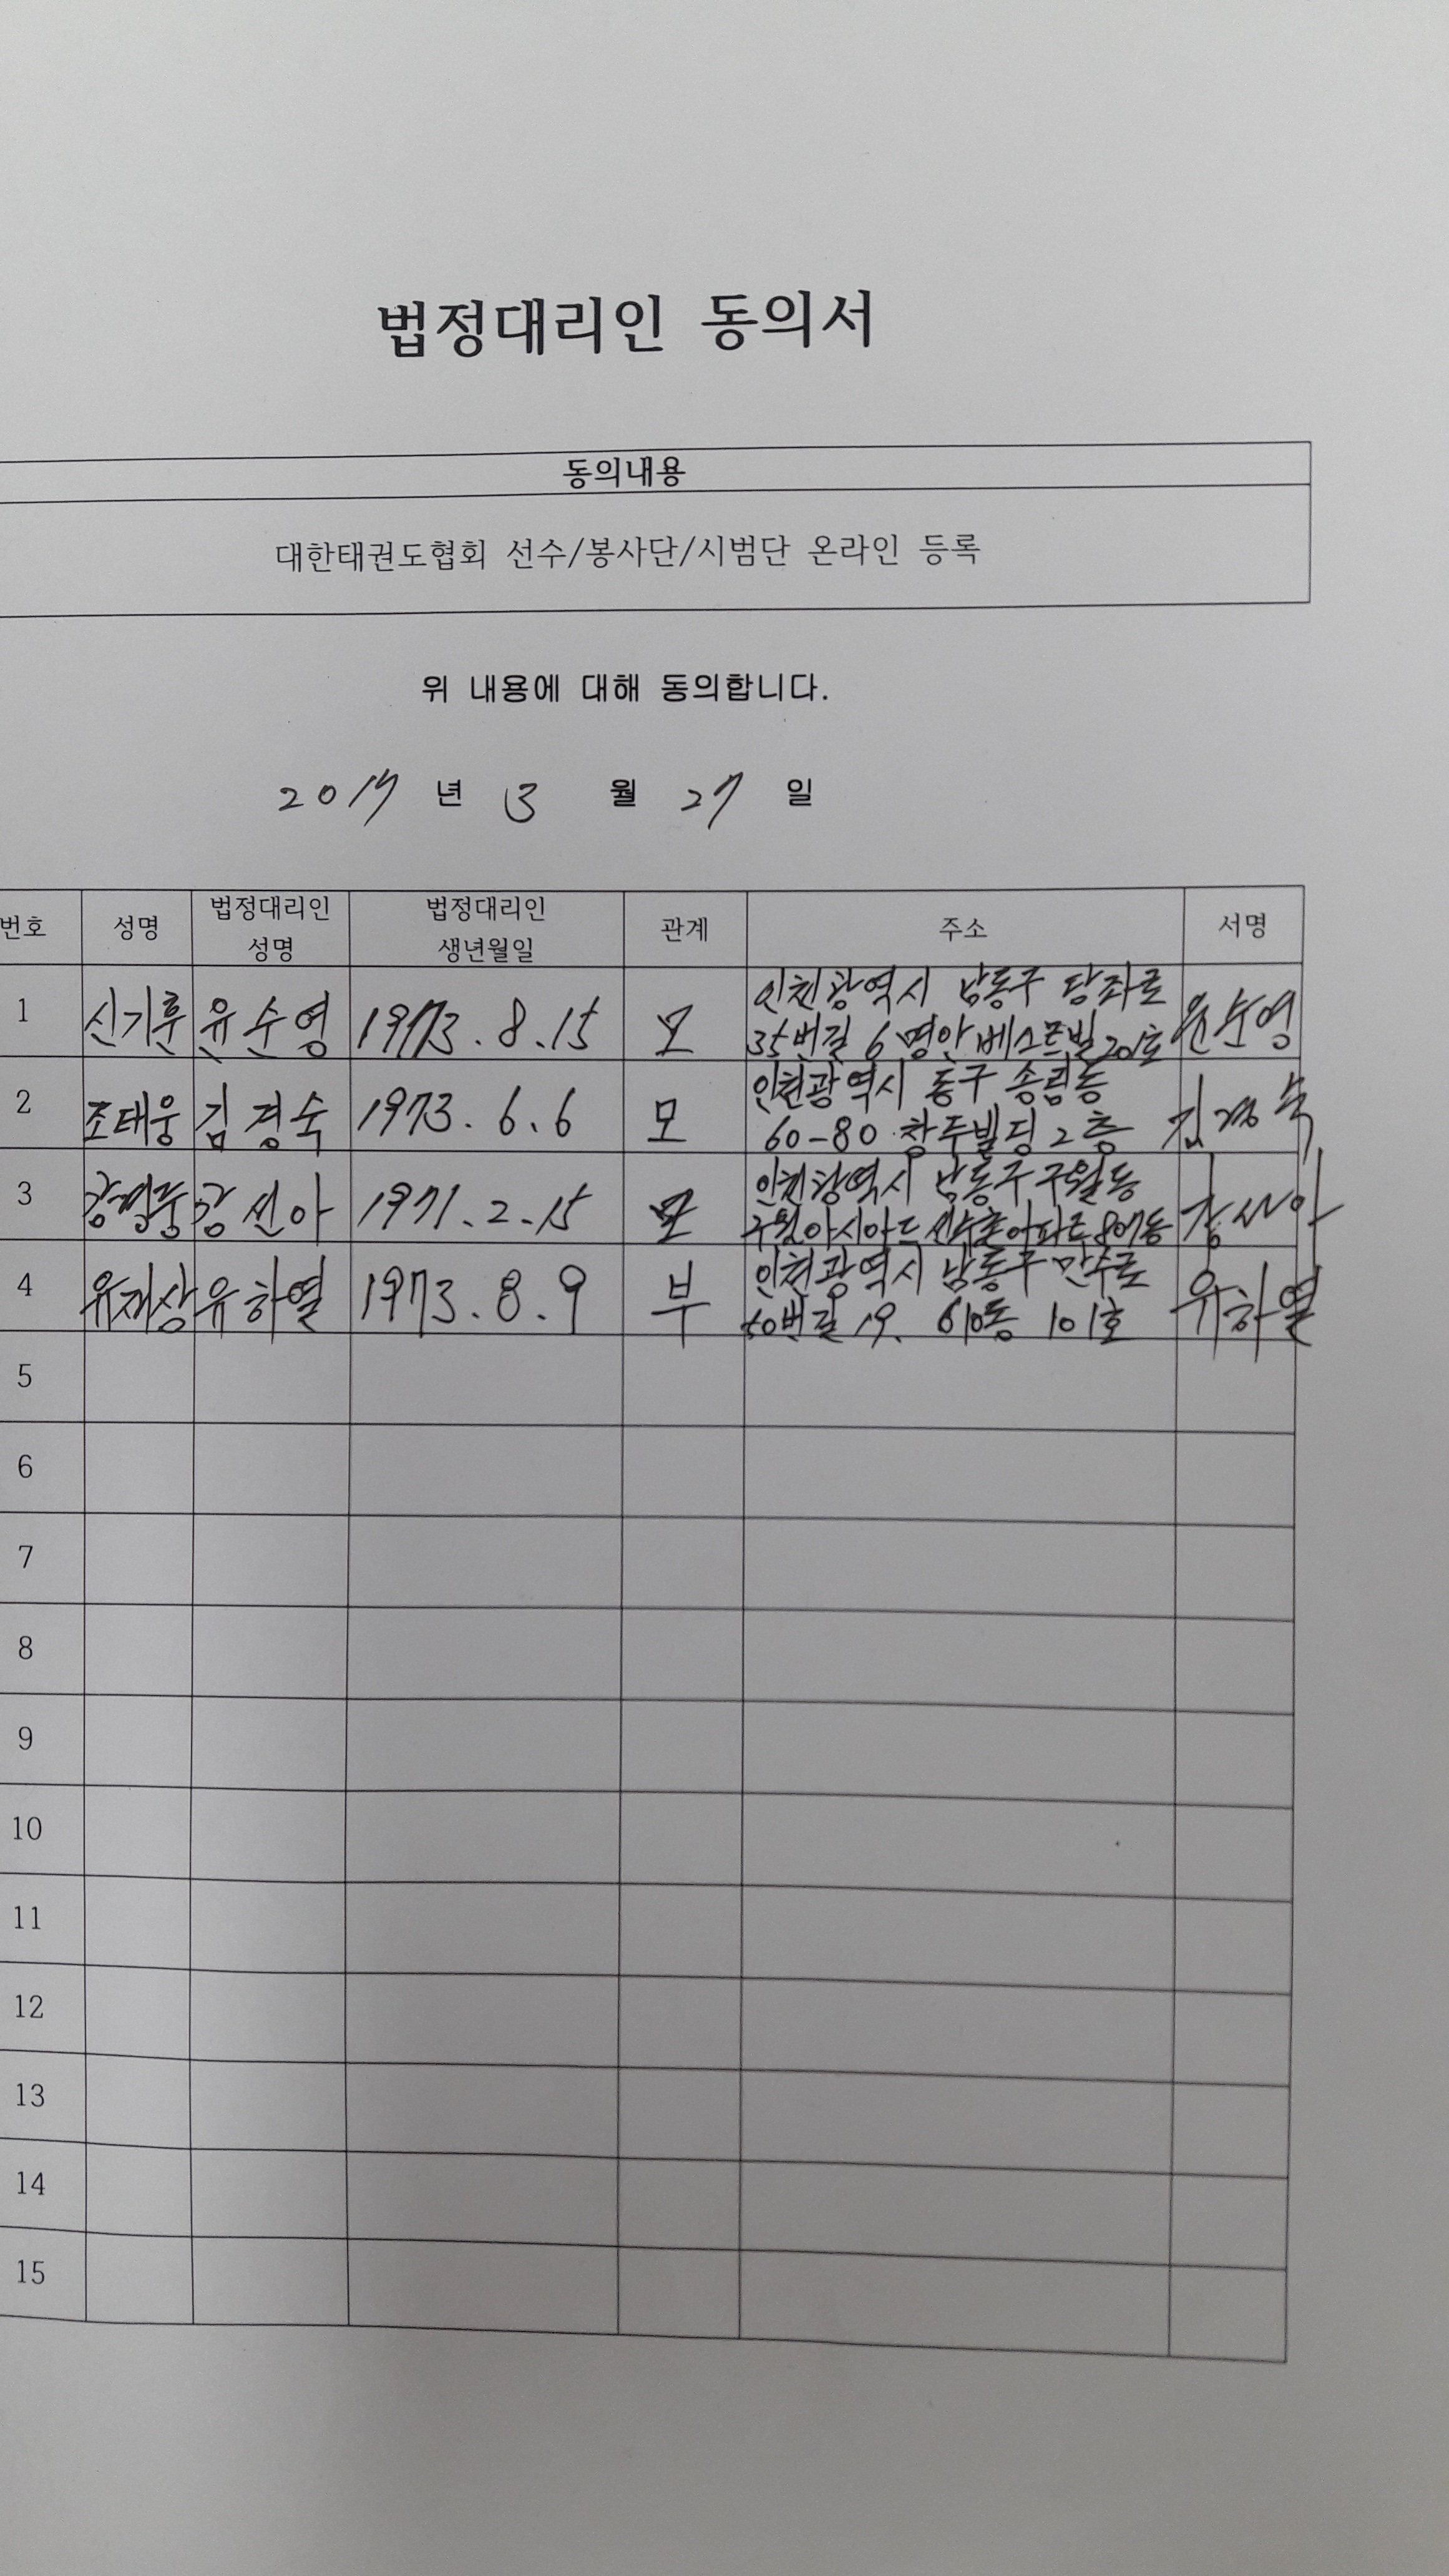 법정대리인 동의서
동의내용
대한태권도협회 선수/봉사단/시범단 온라인 등록
위 내용에 대해 동의합니다.
2017 년 3 월 27 일
번호 성명 법정대리인 성명 법정대리인 생년월일 관계 주소 서명
1 신기훈 윤순영 1973.8.15 모 인천광역시 남동구 담방로 윤순영
35번길 6 명안베스트빌 201호
2 조태웅 김경숙 1973.6.6 모 인천광역시 동구 송림동 김경숙
60-80 창두빌딩 2층
3 강선아 1971.2.15 모 인천광역시 남동구 구월동 강선아
구월아시아드선수촌아파트 807동
4 유재상 유하열 1973.8.9 부 인천광역시 남동구 만수로 유하열
번길 19. 610동 101호
5
6
7
8
9
10
11
12
13
14
15